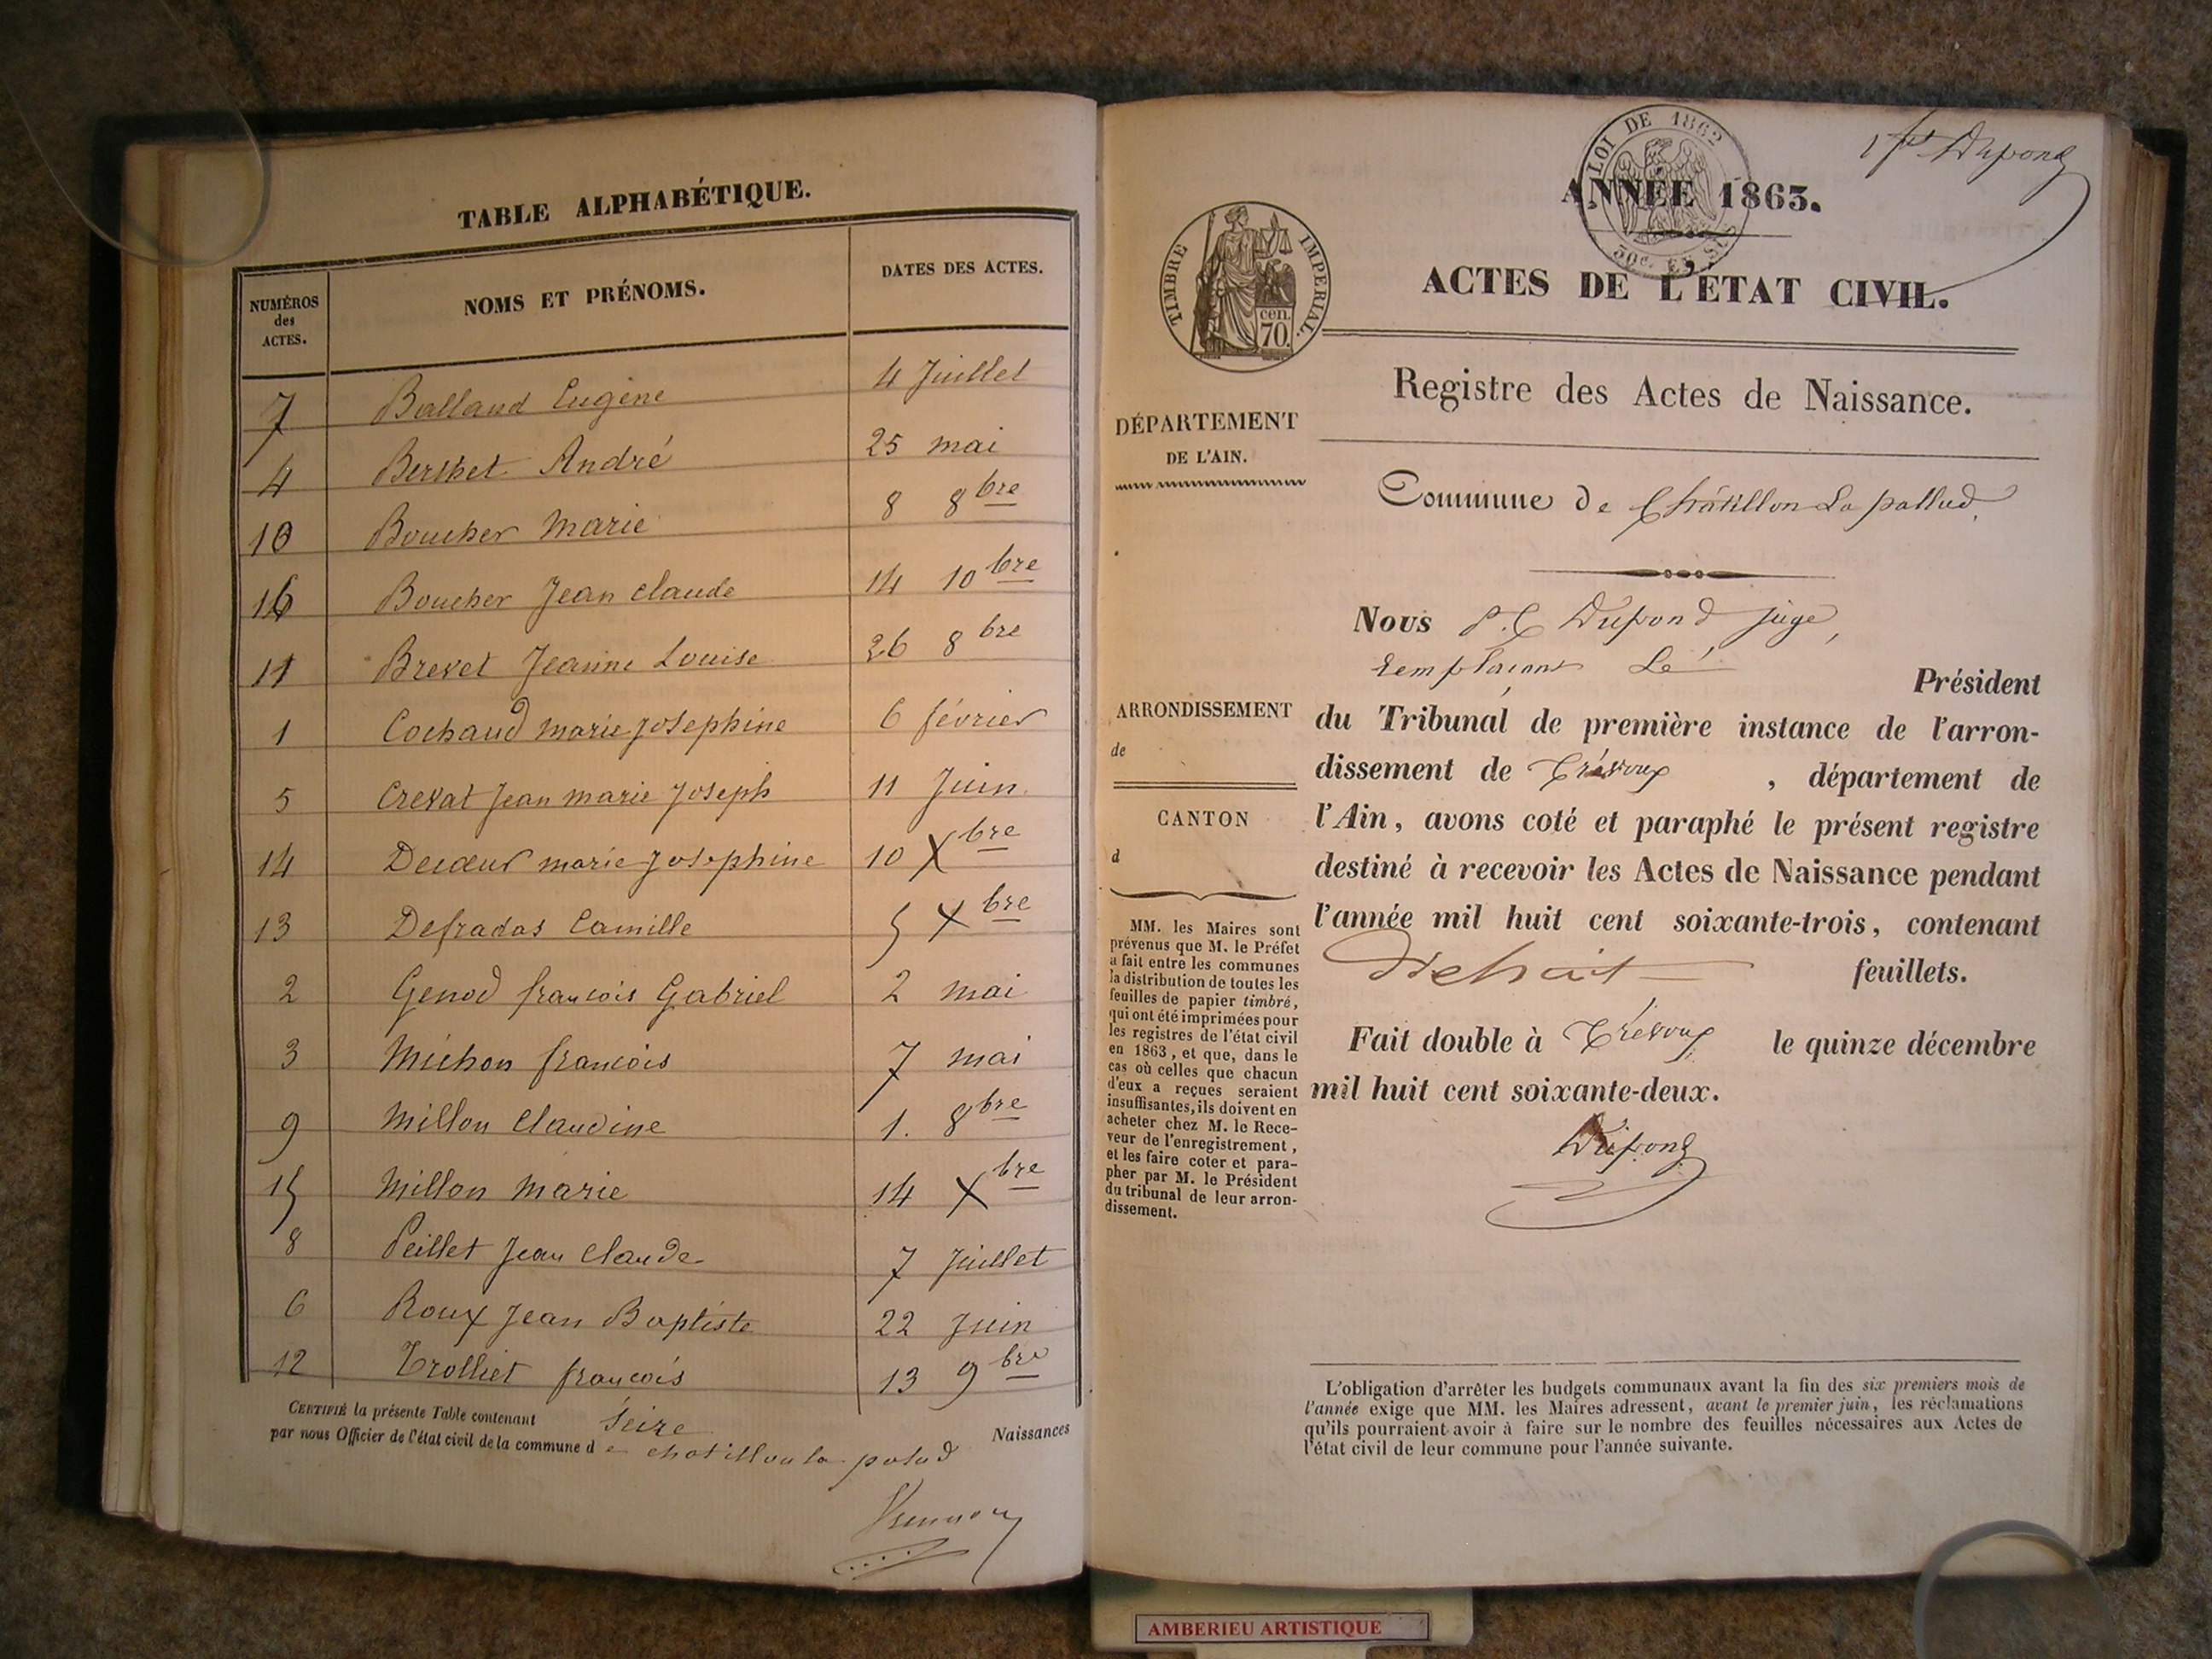 TABLE ALPHABÉTIQUE.
NUMÉROS des ACTES. NOMS ET PRÉNOMS. DATES DES ACTES.
7 Balland Eugène 4 Juillet
4 Berthet André 25 mai
10 Boucher Marie 8 8bre
16 Boucher Jean Claude 14 10bre
11 Brevet Jeanne Louise 26 8bre
1 Cochaud marie Josephine 6 février
5 Crevat Jean marie Joseph 11 Juin
14 Decœur marie Josephine 10 Xbre
13 Defradas Camille 5 Xbre
2 Genod françois Gabriel 2 mai
3 Michon françois 7 mai
9 Millon Claudine 1. 8bre
15 Millon Marie 14 Xbre
8 Peillet Jean Claude 7 Juillet
6 Roux Jean Baptiste 22 Juin
12 Trolliet françois 13 9bre
CERTIFIÉ la présente Table contenant Seize Naissances
par nous Officier de l'état civil de la commune de chatillon la palud
1er Dupond
LOI DE 1862
ANNÉE 1863.
50c. EN SUS
ACTES DE L'ÉTAT CIVIL.
TIMBRE IMPÉRIAL.
cen. 70.
Registre des Actes de Naissance.
DÉPARTEMENT
DE L'AIN.
Commune de Châtillon La pallud,
Nous P. C Dupond juge,
remplaçant Le
Président
du Tribunal de première instance de l'arron-
dissement de Trévoux , département de
l'Ain, avons coté et paraphé le présent registre
destiné à recevoir les Actes de Naissance pendant
l'année mil huit cent soixante-trois, contenant
feuillets.
Fait double à Trévoux le quinze décembre
mil huit cent soixante-deux.
Dupond
ARRONDISSEMENT
de
CANTON
d
MM. les Maires sont
prévenus que M. le Préfet
a fait entre les communes
la distribution de toutes les
feuilles de papier timbré,
qui ont été imprimées pour
les registres de l'état civil
en 1863, et que, dans le
cas où celles que chacun
d'eux a reçues seraient
insuffisantes, ils doivent en
acheter chez M. le Rece-
veur de l'enregistrement,
et les faire coter et para-
pher par M. le Président
du tribunal de leur arron-
dissement.
L'obligation d'arrêter les budgets communaux avant la fin des six premiers mois de
l'année exige que MM. les Maires adressent, avant le premier juin, les réclamations
qu'ils pourraient avoir à faire sur le nombre des feuilles nécessaires aux Actes de
l'état civil de leur commune pour l'année suivante.
AMBERIEU ARTISTIQUE